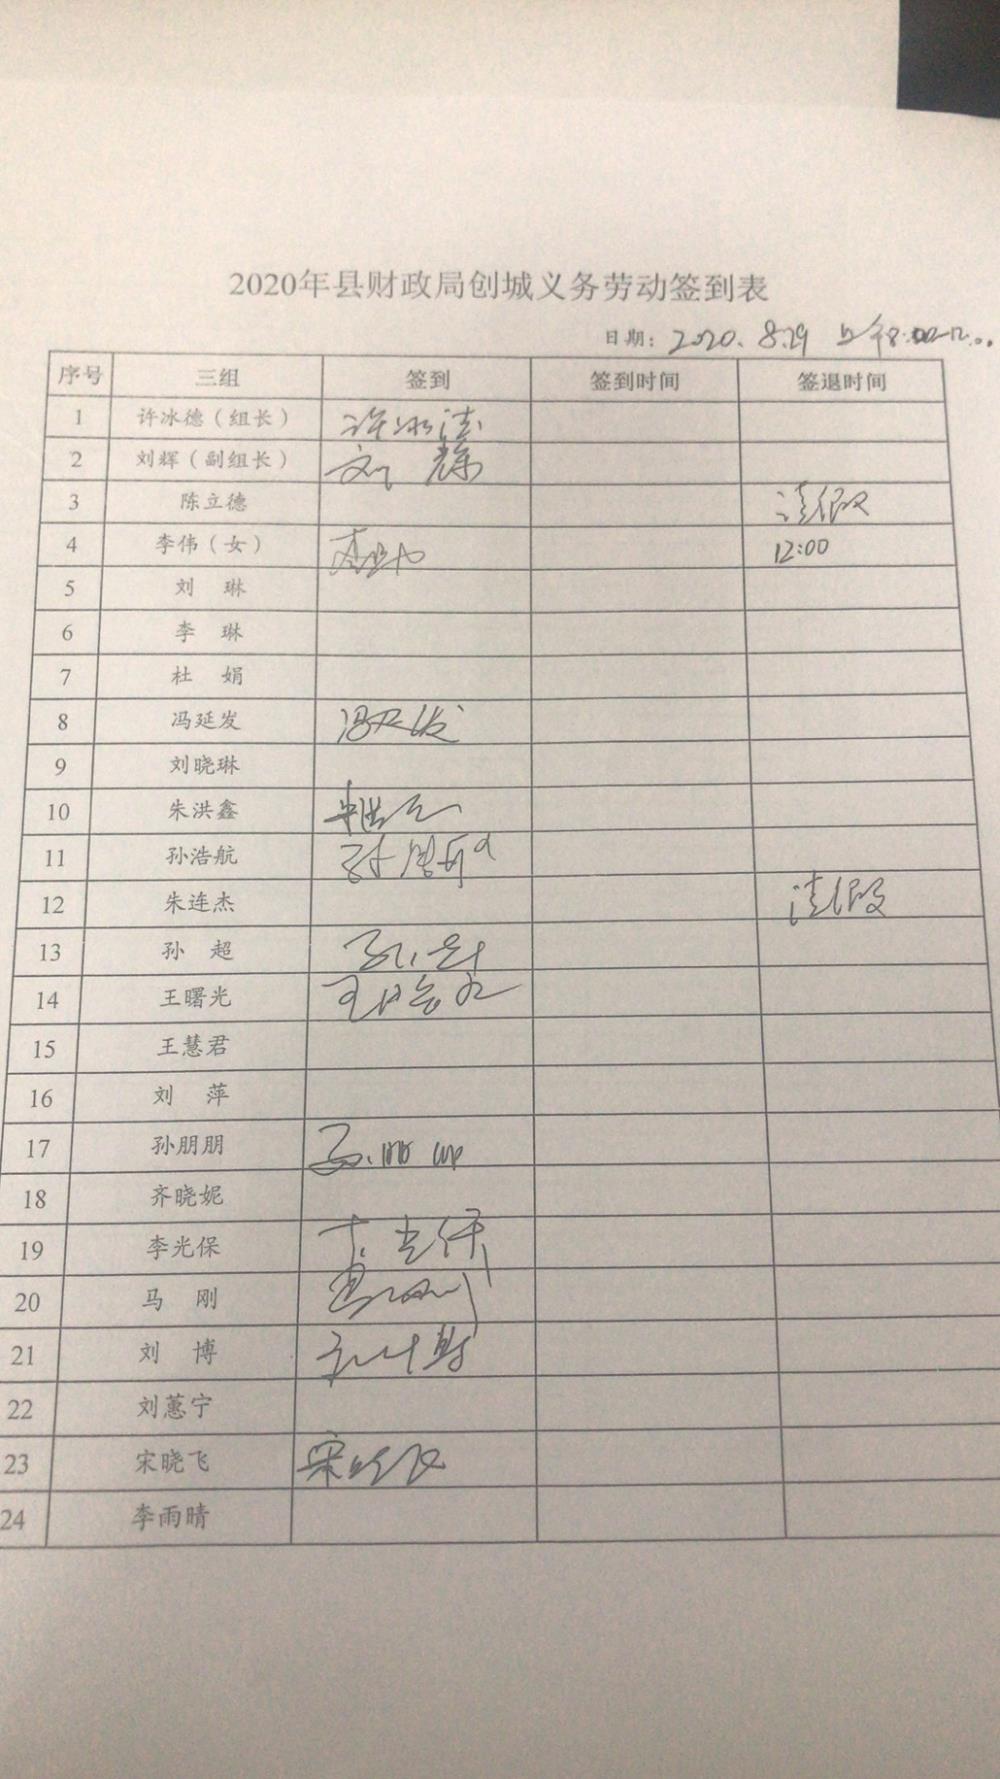 2020年县财政局创城义务劳动签到表
日期: 2020.8.29 上午8:00-12:00
序号 三组 签到 签到时间 签退时间
1 许冰德（组长） 许冰德
2 刘辉（副组长） 刘辉
3 陈立德 请假
4 李伟（女） 12:00
5 刘 琳
6 李 琳
7 杜 娟
8 冯延发 冯延发
9 刘晓琳
10 朱洪鑫 朱洪鑫
11 孙浩航 孙浩航
12 朱连杰 请假
13 孙 超 孙超
14 王曙光 王曙光
15 王慧君
16 刘 萍
17 孙朋朋 孙朋朋
18 齐晓妮
19 李光保 李光保
20 马 刚 马刚
21 刘 博 刘博
22 刘蕙宁
23 宋晓飞 宋晓飞
24 李雨晴